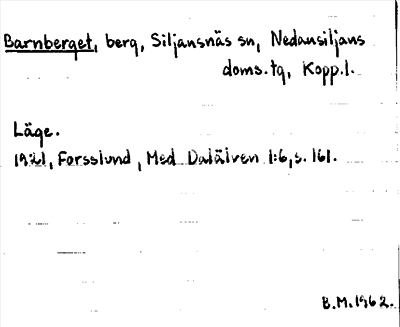 Barnberget, berg, Siljansnäs sn, Nedansiljans
doms. tg, Kopp. l.
Läge.
1921, Forsslund, Med Dalälven 1:6, s. 161.
B.M. 1962.